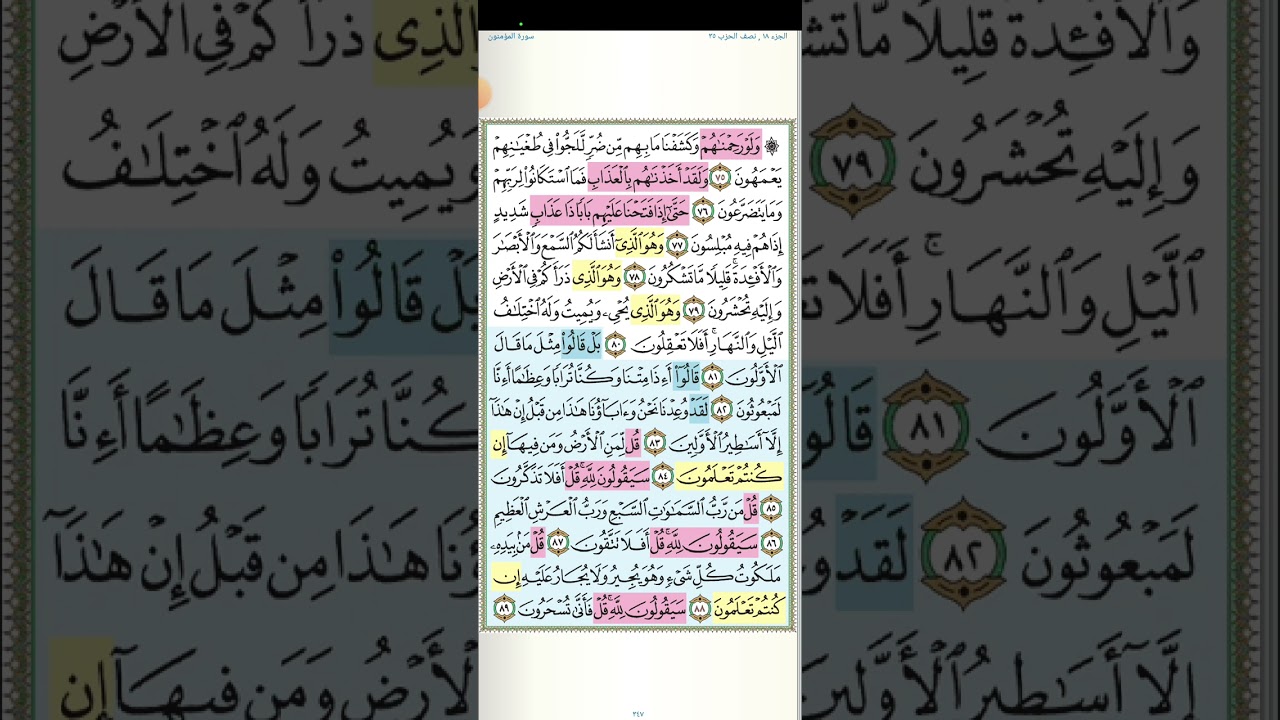 الجزء ١٨ , نصف الحزب ٣٥
سورة المؤمنون
۞ وَلَوْ رَحِمْنَٰهُمْ وَكَشَفْنَا مَا بِهِم مِّن ضُرٍّ لَّلَجُّوا۟ فِى طُغْيَٰنِهِمْ
يَعْمَهُونَ ٧٥ وَلَقَدْ أَخَذْنَٰهُم بِٱلْعَذَابِ فَمَا ٱسْتَكَانُوا۟ لِرَبِّهِمْ
وَمَا يَتَضَرَّعُونَ ٧٦ حَتَّىٰٓ إِذَا فَتَحْنَا عَلَيْهِم بَابًا ذَا عَذَابٍ شَدِيدٍ
إِذَا هُمْ فِيهِ مُبْلِسُونَ ٧٧ وَهُوَ ٱلَّذِىٓ أَنشَأَ لَكُمُ ٱلسَّمْعَ وَٱلْأَبْصَٰرَ
وَٱلْأَفْـِٔدَةَ ۚ قَلِيلًا مَّا تَشْكُرُونَ ٧٨ وَهُوَ ٱلَّذِى ذَرَأَكُمْ فِى ٱلْأَرْضِ
وَإِلَيْهِ تُحْشَرُونَ ٧٩ وَهُوَ ٱلَّذِى يُحْىِۦ وَيُمِيتُ وَلَهُ ٱخْتِلَٰفُ
ٱلَّيْلِ وَٱلنَّهَارِ ۚ أَفَلَا تَعْقِلُونَ ٨٠ بَلْ قَالُوا۟ مِثْلَ مَا قَالَ
ٱلْأَوَّلُونَ ٨١ قَالُوٓا۟ أَءِذَا مِتْنَا وَكُنَّا تُرَابًا وَعِظَٰمًا أَءِنَّا
لَمَبْعُوثُونَ ٨٢ لَقَدْ وُعِدْنَا نَحْنُ وَءَابَآؤُنَا هَٰذَا مِن قَبْلُ إِنْ هَٰذَآ
إِلَّآ أَسَٰطِيرُ ٱلْأَوَّلِينَ ٨٣ قُل لِّمَنِ ٱلْأَرْضُ وَمَن فِيهَآ إِن
كُنتُمْ تَعْلَمُونَ ٨٤ سَيَقُولُونَ لِلَّهِ ۚ قُلْ أَفَلَا تَذَكَّرُونَ
٨٥ قُلْ مَن رَّبُّ ٱلسَّمَٰوَٰتِ ٱلسَّبْعِ وَرَبُّ ٱلْعَرْشِ ٱلْعَظِيمِ
٨٦ سَيَقُولُونَ لِلَّهِ ۚ قُلْ أَفَلَا تَتَّقُونَ ٨٧ قُلْ مَنۢ بِيَدِهِۦ
مَلَكُوتُ كُلِّ شَىْءٍ وَهُوَ يُجِيرُ وَلَا يُجَارُ عَلَيْهِ إِن
كُنتُمْ تَعْلَمُونَ ٨٨ سَيَقُولُونَ لِلَّهِ ۚ قُلْ فَأَنَّىٰ تُسْحَرُونَ ٨٩
٣٤٧